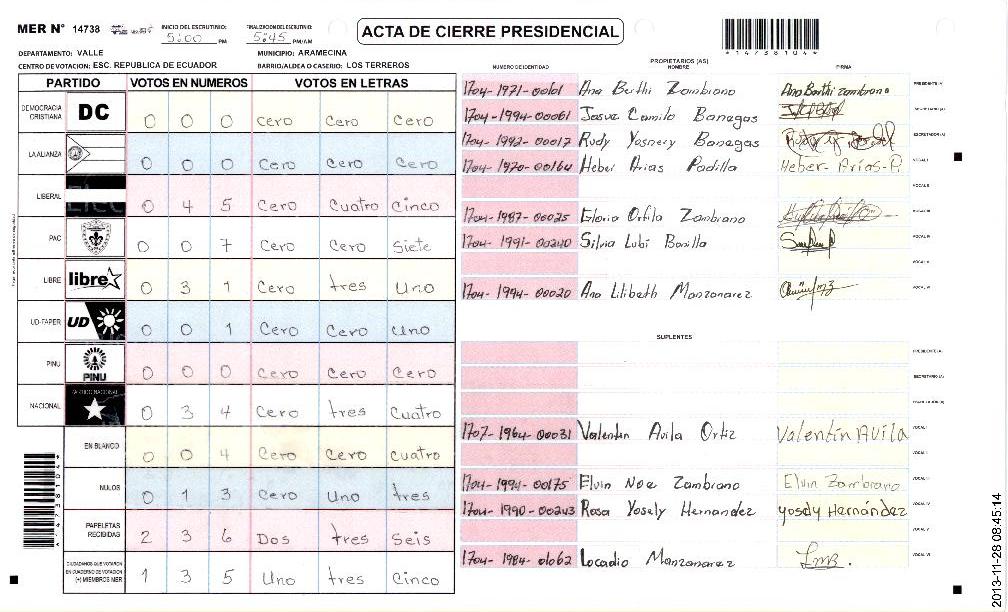 MER N° 14738 INICIO DEL ESCRUTINIO: 5:00 PM FINALIZACION DEL ESCRUTINIO: 5:45 PM/AM
ACTA DE CIERRE PRESIDENCIAL
*14738104*
DEPARTAMENTO: VALLE MUNICIPIO: ARAMECINA
CENTRO DE VOTACION: ESC. REPUBLICA DE ECUADOR BARRIO/ALDEA O CASERIO: LOS TERREROS
PARTIDO VOTOS EN NUMEROS VOTOS EN LETRAS
DEMOCRACIA CRISTIANA DC 0 0 0 cero cero cero
LA ALIANZA 0 0 0 cero cero cero
LIBERAL 0 4 5 cero cuatro cinco
PAC 0 0 7 cero cero siete
LIBRE libre 0 3 1 cero tres uno
UD-FAPER UD 0 0 1 cero cero uno
PINU PINU 0 0 0 cero cero cero
NACIONAL PARTIDO NACIONAL 0 3 4 cero tres cuatro
EN BLANCO 0 0 4 cero cero cuatro
NULOS 0 1 3 cero uno tres
PAPELETAS RECIBIDAS 2 3 6 Dos tres seis
CIUDADANOS QUE VOTARON EN CUADERNO DE VOTACION (+) MIEMBROS MER 1 3 5 uno tres cinco
PROPIETARIOS (AS)
NUMERO DE IDENTIDAD NOMBRE FIRMA
1704-1971-00161 Ana Berthi Zambrano Ana Berthi Zambrano PRESIDENTE (A)
1704-1994-00061 Josue Camilo Banegas SECRETARIO (A)
1704-1992-00017 Rudy Yosnery Banegas ESCRUTADOR (A)
1704-1970-00164 Heber Arias Padilla Heber-Arias-P. VOCAL I
VOCAL II
1704-1987-00025 Gloria Orfila Zambrano VOCAL III
1704-1991-00240 Silvia Lubi Bonilla VOCAL IV
VOCAL V
1704-1994-00020 Ana Lilibeth Manzanarez VOCAL VI
SUPLENTES
PRESIDENTE (A)
SECRETARIO (A)
ESCRUTADOR (A)
1707-1964-00031 Valentin Avila Ortiz Valentín Avila VOCAL I
VOCAL II
1704-1994-00175 Elvin Noe Zambrano Elvin Zambrano VOCAL III
1704-1990-00243 Rosa Yosely Hernandez Yosely Hernández VOCAL IV
VOCAL V
1704-1984-01062 Locadio Manzanarez VOCAL VI
2013-11-28 08:45:14